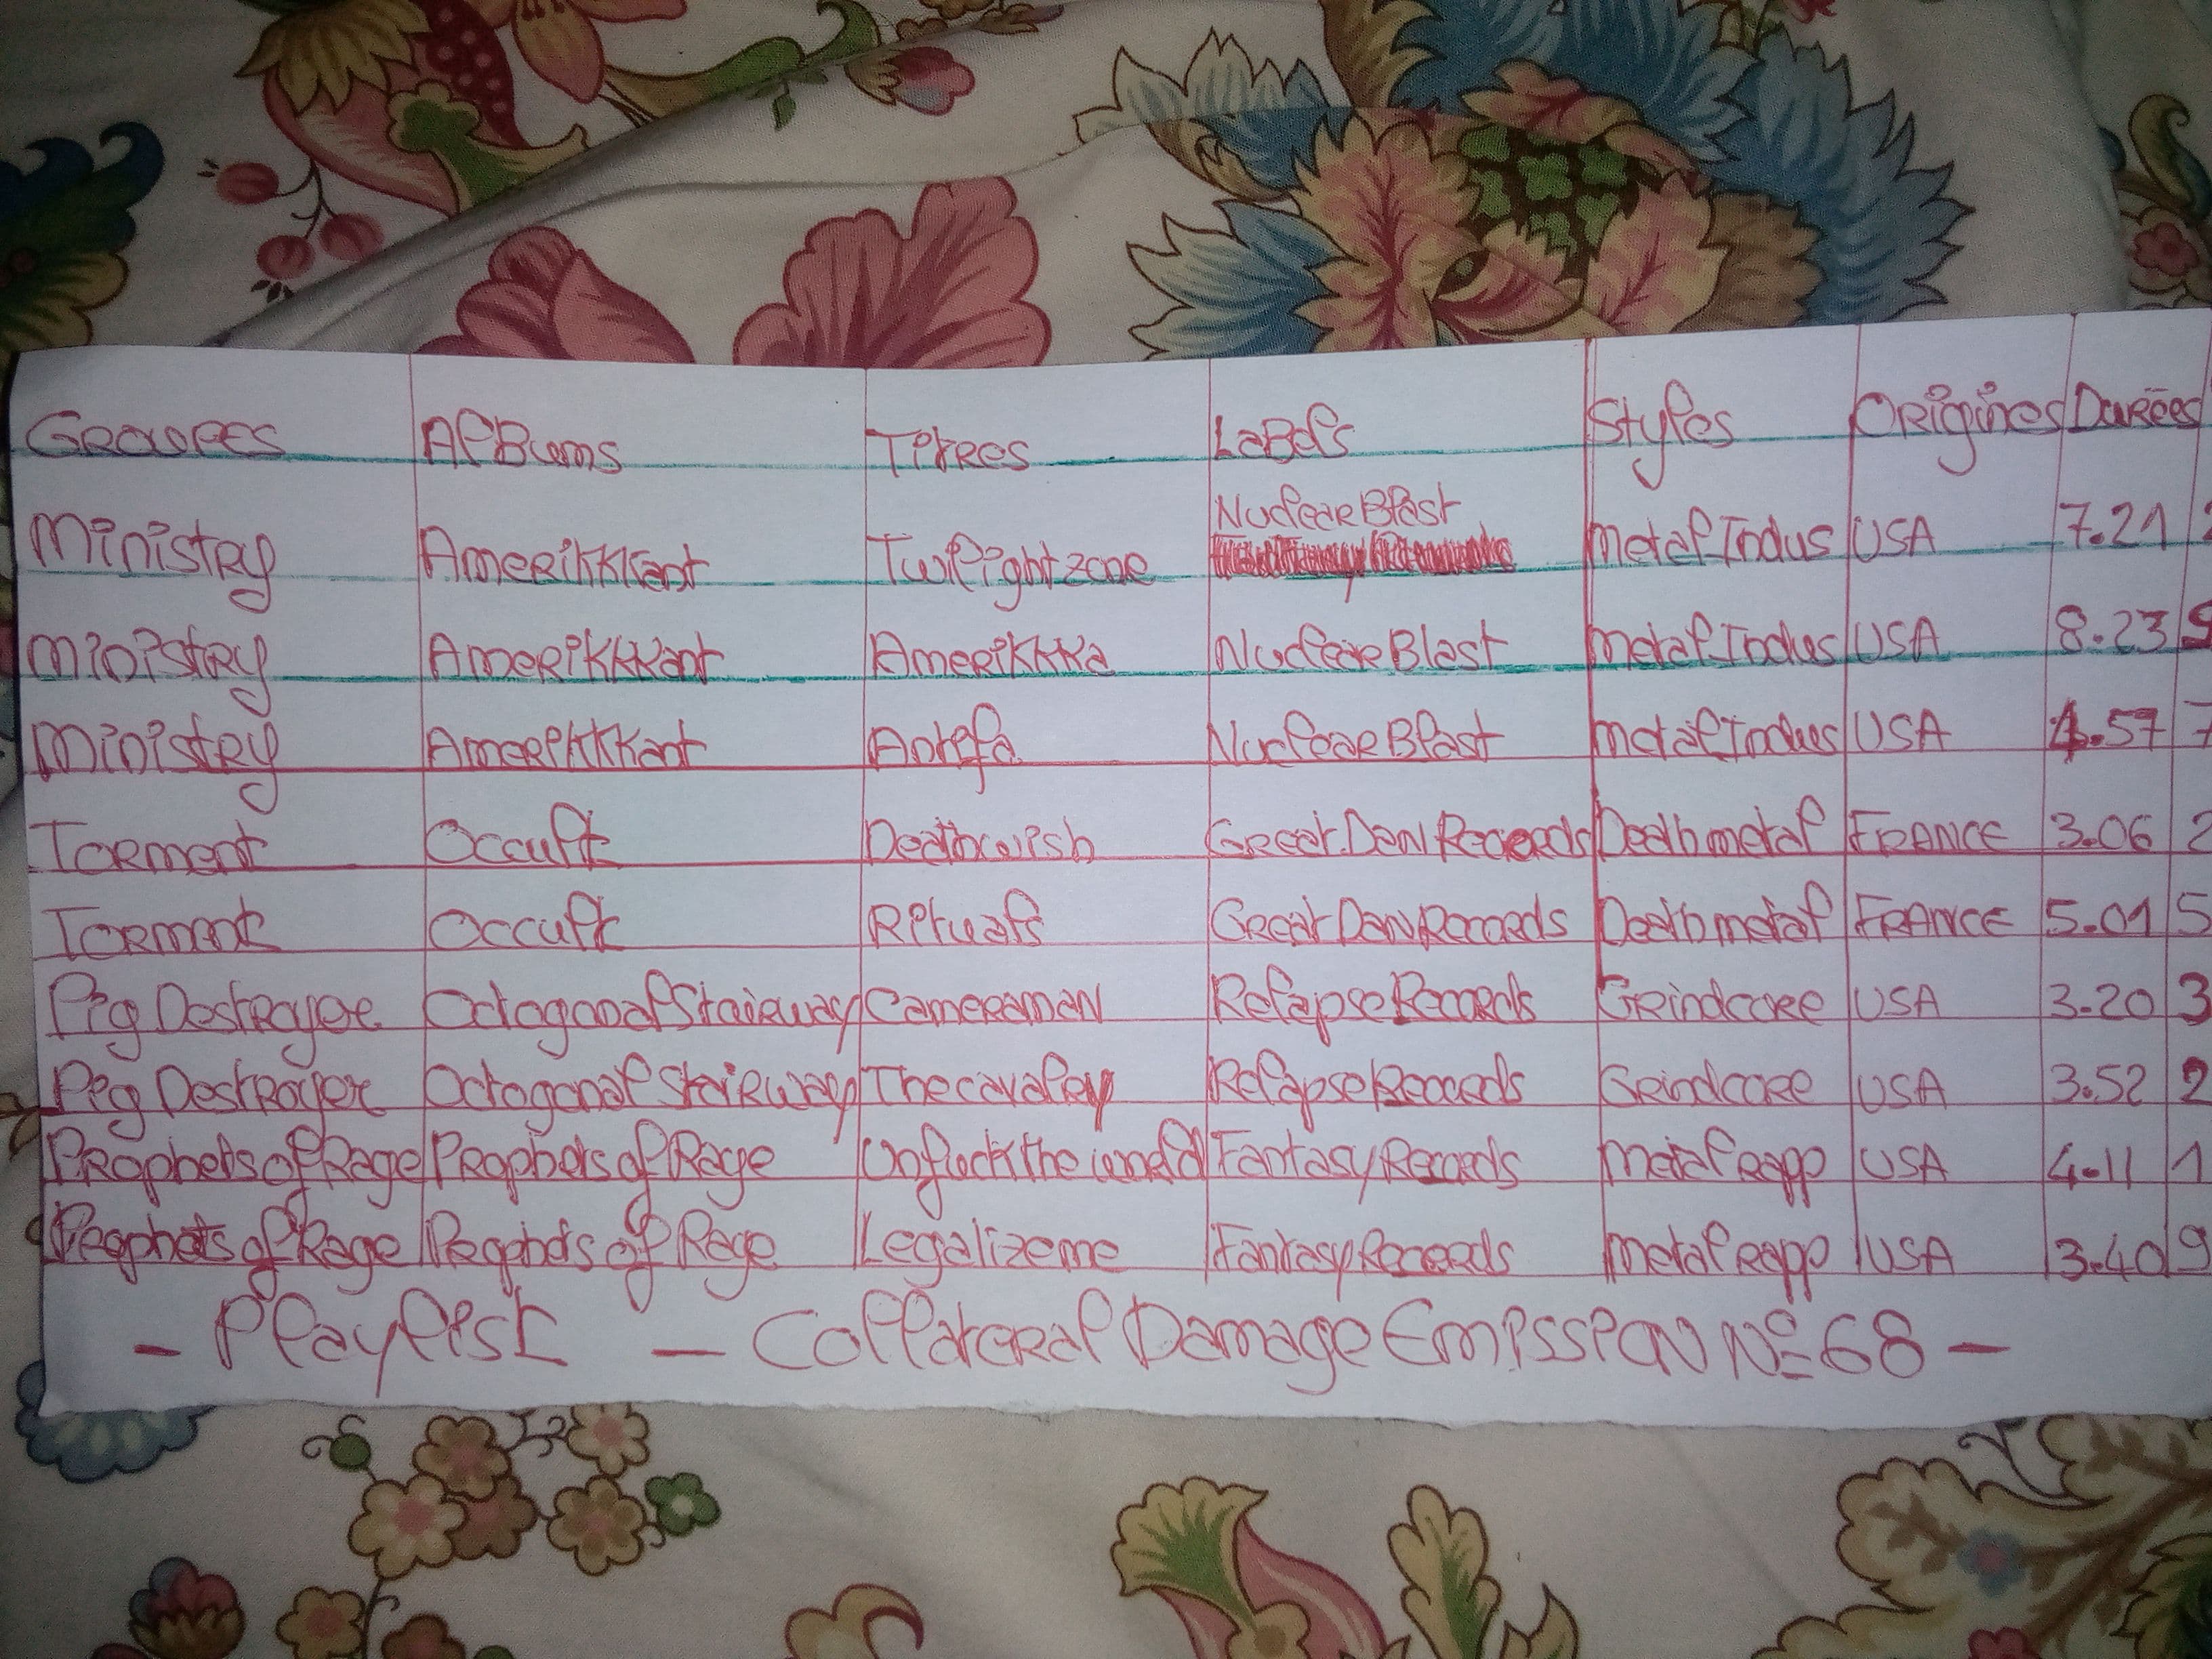 Groupes Albums Titres Labels Styles Origines Durées
Ministry AmeriKKKant Twilight zone Nuclear Blast Metal Indus USA 7.21 2
Ministry AmeriKKKant AmeriKKKa Nuclear Blast Metal Indus USA 8.23 9
Ministry AmeriKKKant Antifa Nuclear Blast Metal Indus USA 4.57 7
Torment Occult Deathwish Great Dan Records Death metal FRANCE 3.06 2
Torment Occult Rituals Great Dan Records Death metal FRANCE 5.01 5
Pig Destroyer Octogonal Stairway Cameraman Relapse Records Grindcore USA 3.20 3
Pig Destroyer Octogonal Stairway The cavalry Relapse Records Grindcore USA 3.52 2
Prophets of Rage Prophets of Rage Unfuck the world Fantasy Records Metal rapp USA 4.11 1
Prophets of Rage Prophets of Rage Legalize me Fantasy Records Metal rapp USA 3.40 9
- Playlist - Collateral Damage Emission Nº 68 -